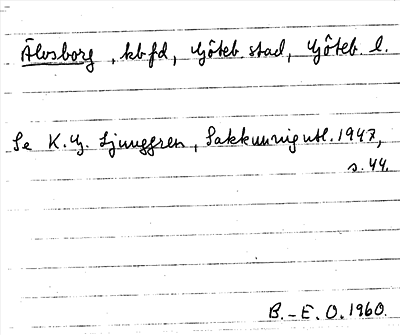 Älvsborg, kbfd, Göteb. stad, Göteb. l.
Se K. G. Ljunggren, Sakkunnigutl. 1947,
s. 44.
B.-E. O. 1960.